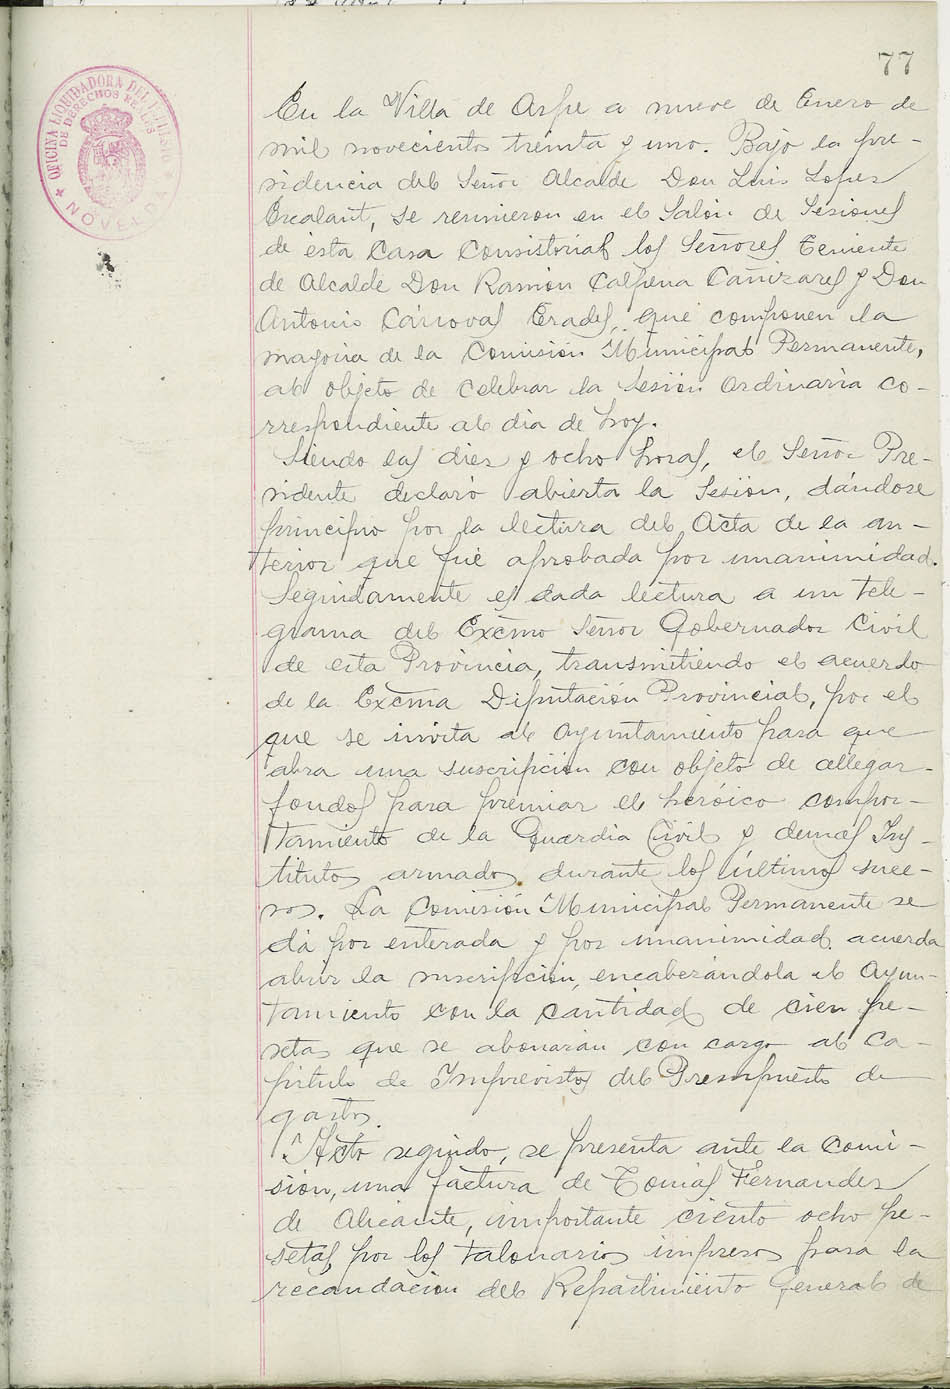 77
OFICINA LIQUIDADORA DEL IMPUESTO
DE DERECHOS REALES
NOVELDA
En la Villa de Aspe a nueve de Enero de
mil novecientos treinta y uno. Bajo la pre-
sidencia del Señor Alcalde Don Luis Lopez
Escalant, se reunieron en el Salón de Sesiones
de ésta Casa Consistorial los Señores Teniente
de Alcalde Don Ramón Calpena Cañizares y Don
Antonio Cánovas Erades, que componen la
mayoria de la Comisión Municipal Permanente,
al objeto de celebrar la Sesión Ordinaria co-
rrespondiente al dia de hoy.
Siendo las diez y ocho horas, el Señor Pre-
sidente declaró abierta la Sesión, dándose
principio por la lectura del Acta de la an-
terior que fué aprobada por unanimidad.
Seguidamente es dada lectura a un tele-
grama del Excmo Señor Gobernador Civil
de esta Provincia, transmitiendo el acuerdo
de la Excma Diputación Provincial, por el
que se invita al Ayuntamiento para que
abra una suscripción con objeto de allegar
fondos para premiar el heróico compor-
tamiento de la Guardia Civil y demás Ins-
titutos armados durante los últimos suce-
sos. La Comisión Municipal Permanente se
dá por enterada y por unanimidad acuerda
abrir la suscripción, encabezándola el Ayun-
tamiento con la cantidad de cien pe-
setas que se abonarán con cargo al Ca-
pitulo de Imprevistos del Presupuesto de
gastos.
Acto seguido, se presenta ante la Comi-
sión, una factura de Tomás Fernandez
de Alicante, importante ciento ocho pe-
setas por los talonarios impresos para la
recaudación del Repartimiento General de